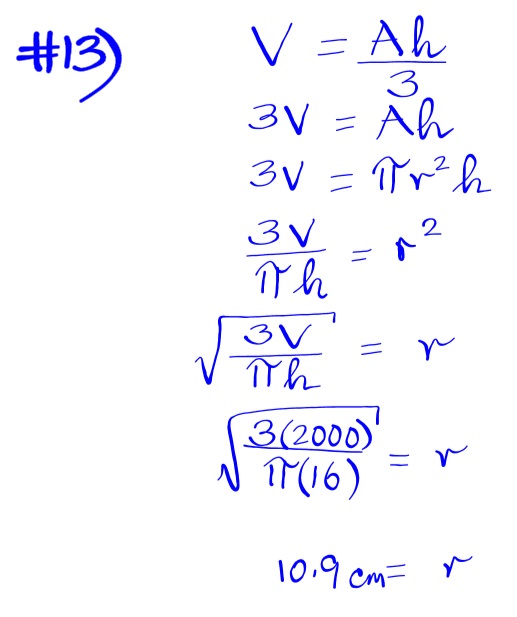 #13)
V = Ah/3
3V = Ah
3V = πr²h
3V/πh = r²
√(3V/πh) = r
√(3(2000)/π(16)) = r
10.9 cm = r